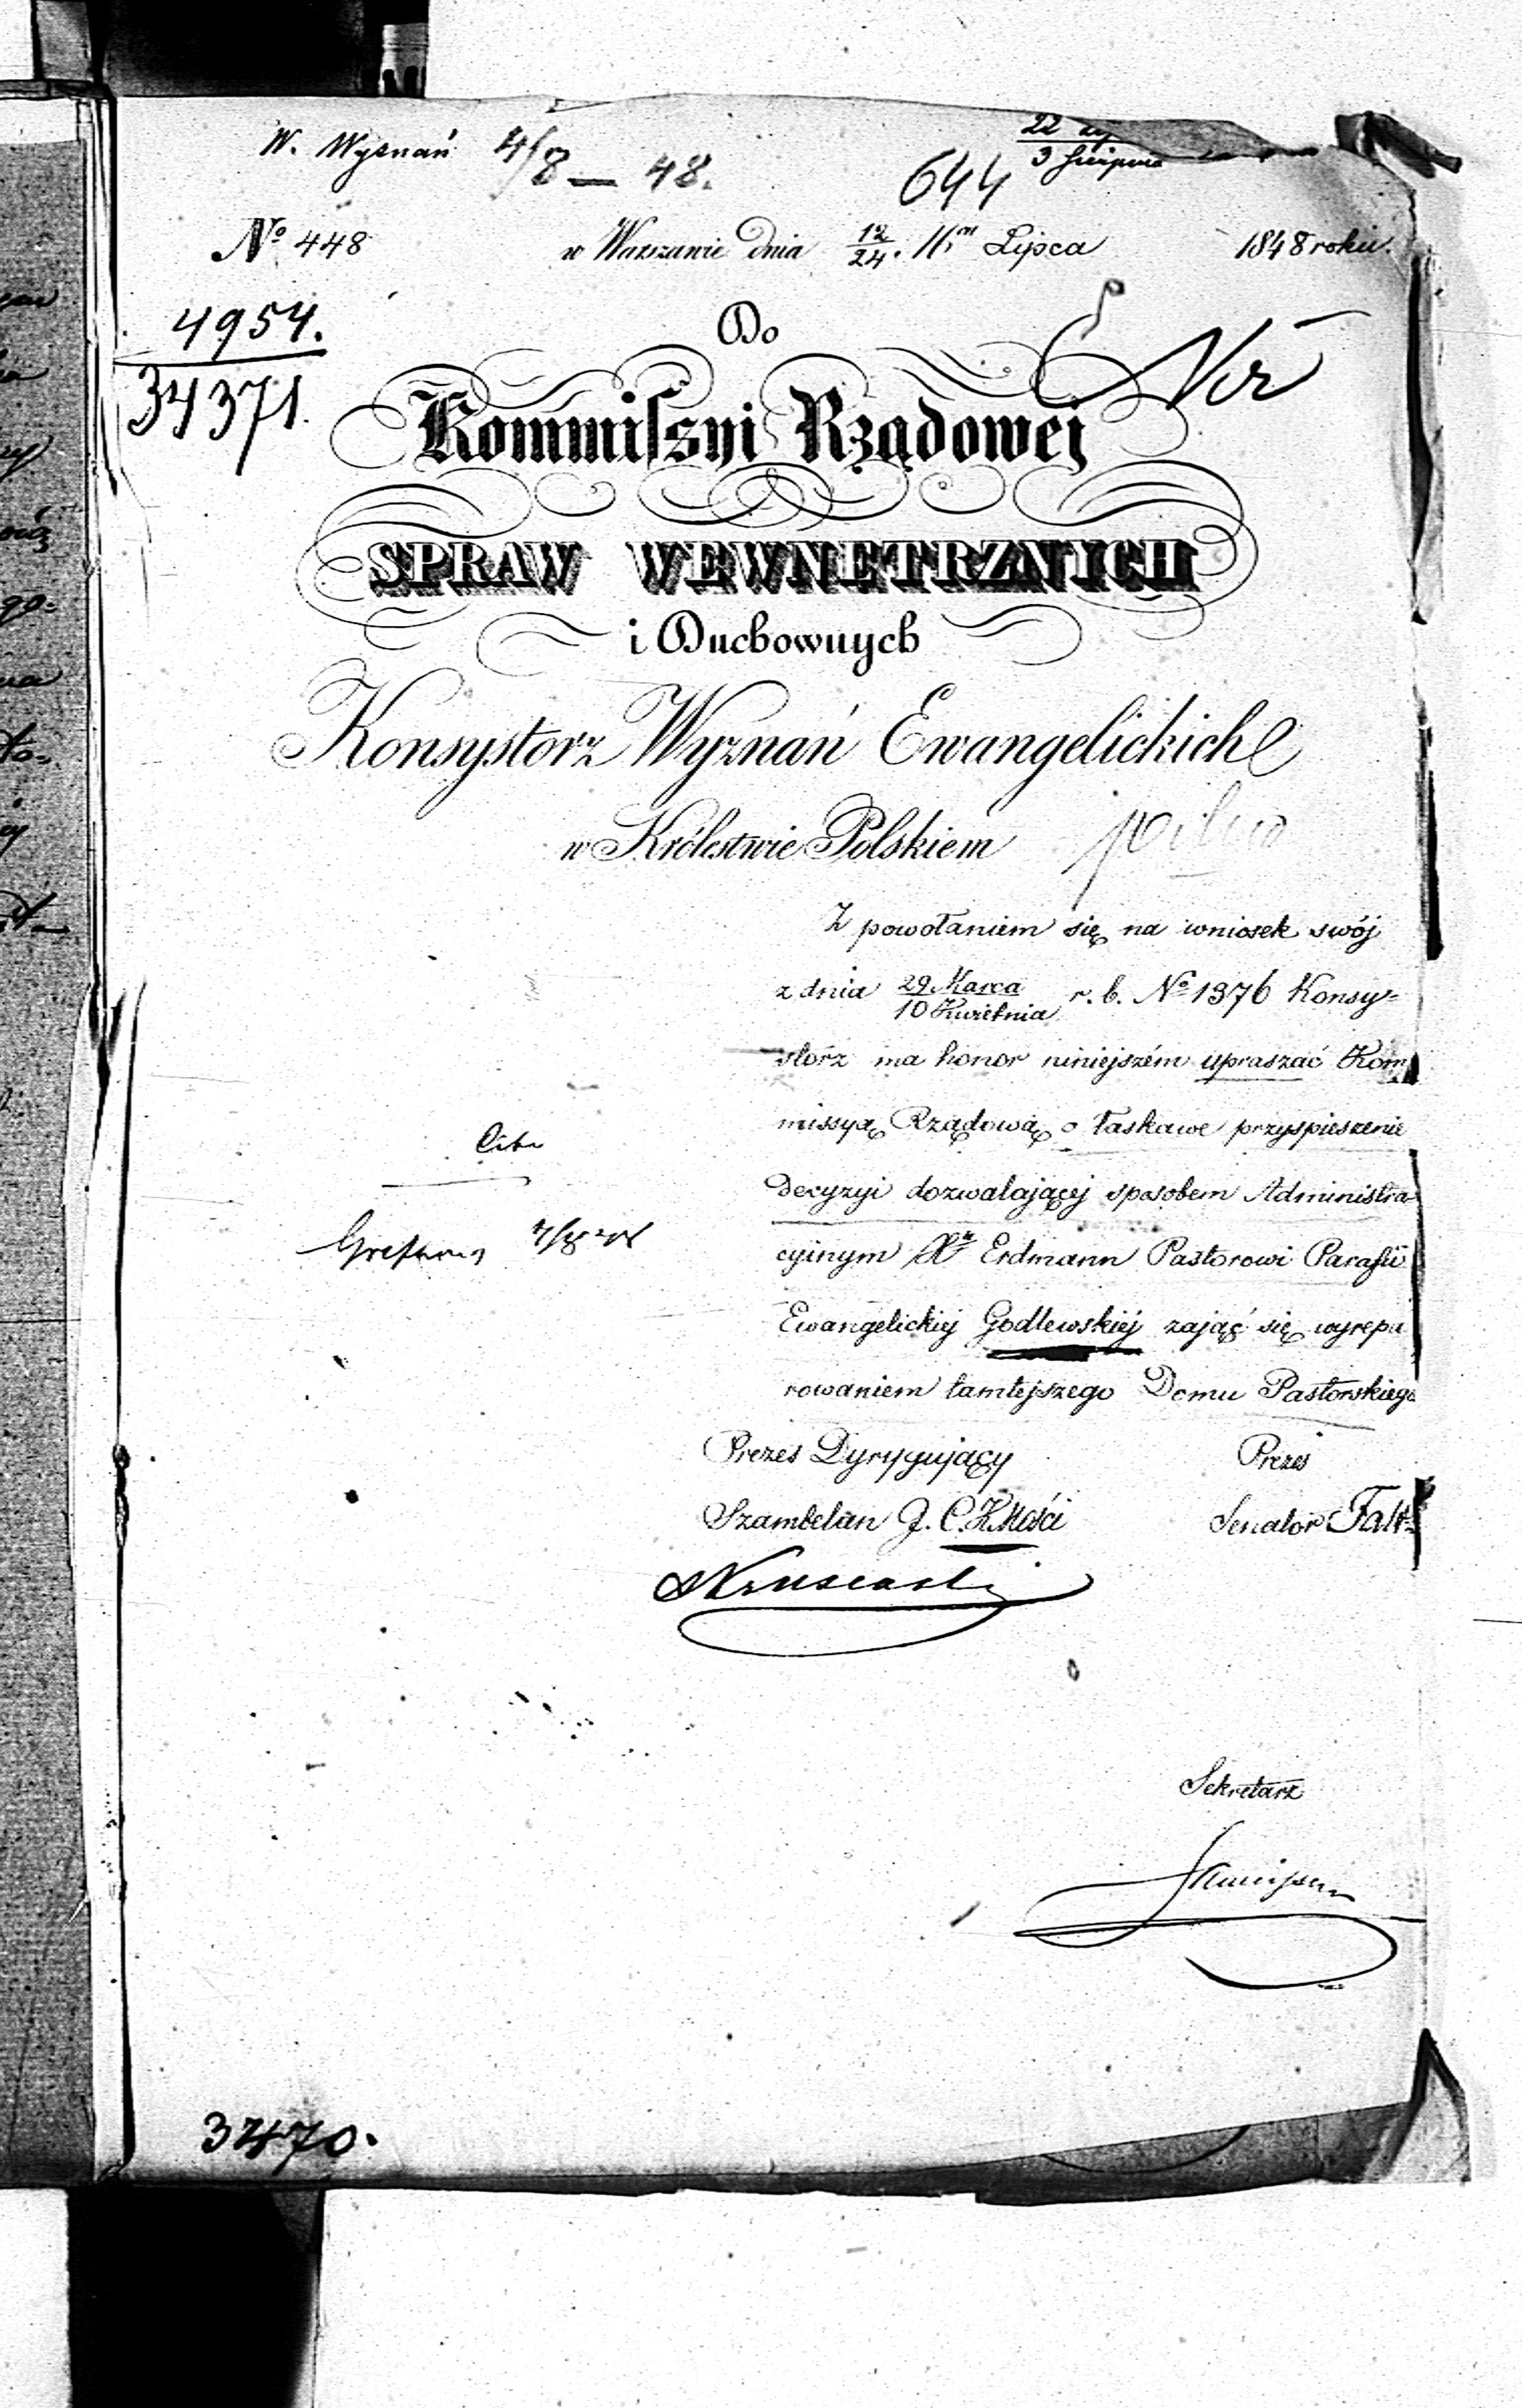 W. Wyznań 4/8 — 48.
644
22
3 Sierpnia
№ 448
w Warszawie dnia 12/24. Lipca 1848 roku.
4954.
34371.
Do
Kommiſsyi Rządowej
SPRAW WEWNETRZNYCH
i Duchownych
Konsystorz Wyznań Ewangelickich
w Królestwie Polskiem
pilno
Z powołaniem się na wniosek swój
z dnia 29 Marca / 10 Kwietnia r. b. № 1376 Konsy=
storz ma honor niniejszém upraszać Kom
missyą Rządową o łaskawe przyspieszenie
Decyzyi dozwalającej sposobem Administra
cyinym Xu Erdmann Pastorowi Parafii
Ewangelickiej Godlewskiéj zająć się wyrepa
rowaniem tamtejszego Domu Pastorskiego
Prezes Dyrygujący
Prezes
Szambelan J. C. K. Mości
Senator
Sekretarz
3470.